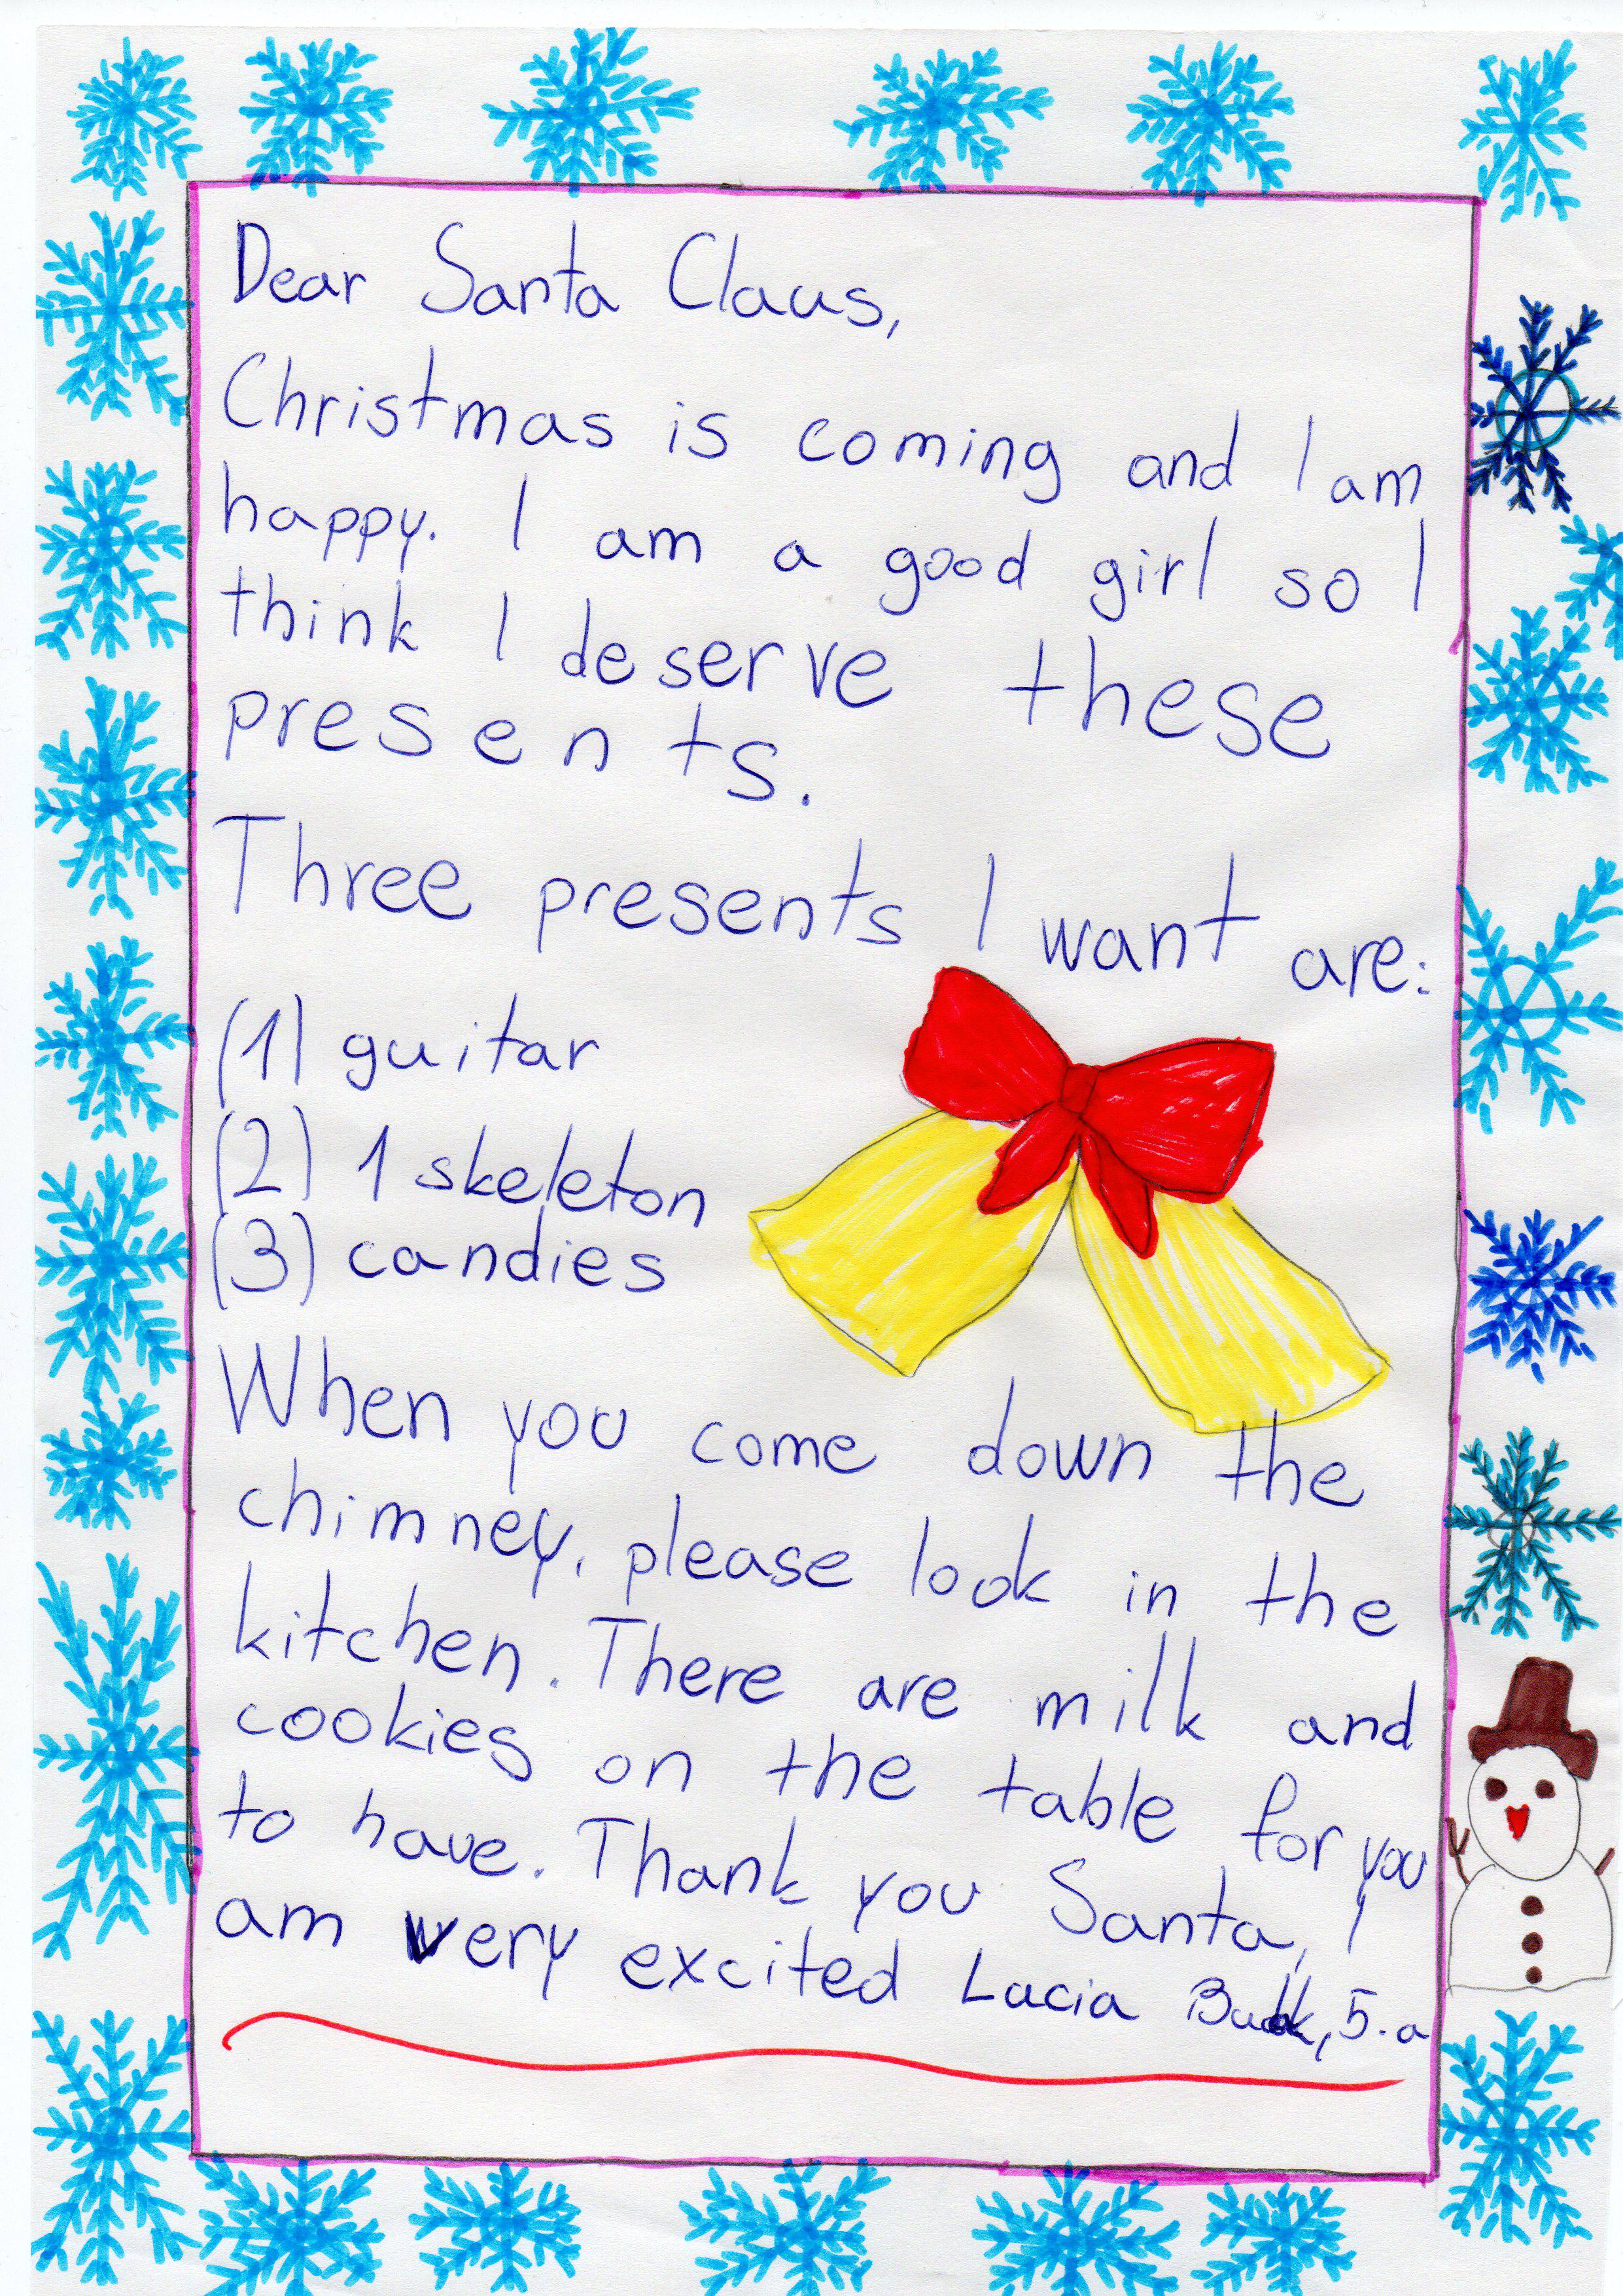 Dear Santa Claus,
Christmas is coming and I am
happy. I am a good girl so I
think I deserve these
presents.
Three presents I want are:
(1) guitar
(2) 1 skeleton
(3) candies
When you come down the
chimney, please look in the
kitchen. There are milk and
cookies on the table for you
to have. Thank you Santa, I
am very excited Lucia 5.a